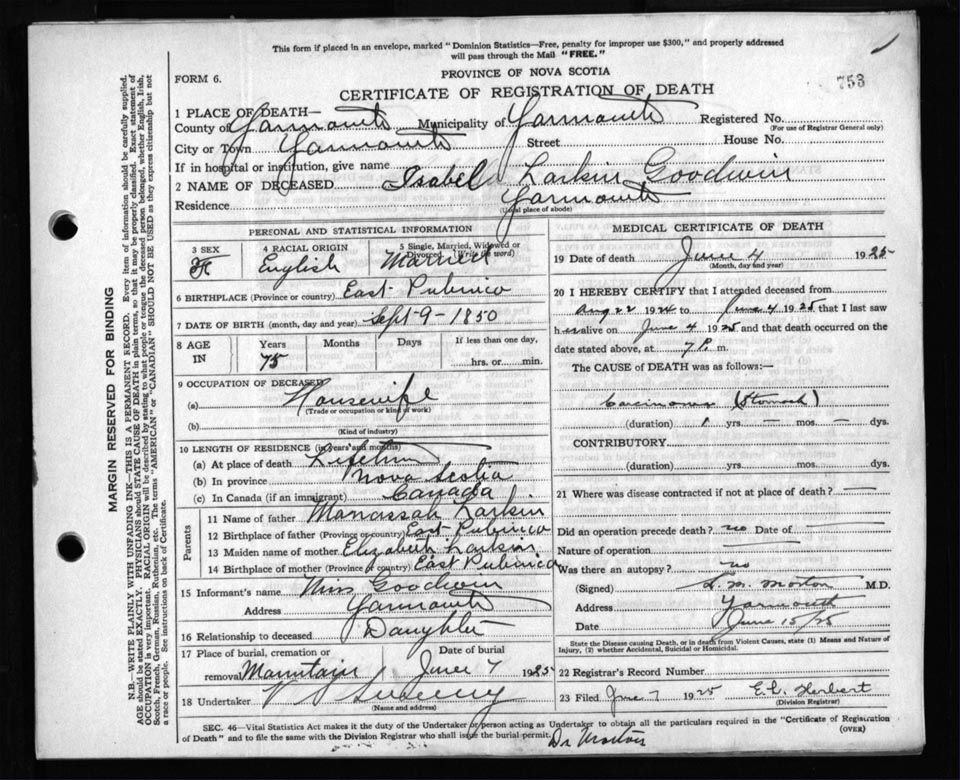 This form if placed in an envelope, marked "Dominion Statistics—Free, penalty for improper use $300," and properly addressed
will pass through the Mail "FREE."
753
FORM 6.
PROVINCE OF NOVA SCOTIA
CERTIFICATE OF REGISTRATION OF DEATH
1 PLACE OF DEATH—
County of Yarmouth Municipality of Yarmouth Registered No.
(For use of Registrar General only)
City or Town Yarmouth Street House No.
If in hospital or institution, give name
2 NAME OF DECEASED Isabel Larkin Goodwin
Residence Yarmouth
(Usual place of abode)
PERSONAL AND STATISTICAL INFORMATION
3 SEX F
4 RACIAL ORIGIN English
5 Single, Married, Widowed or Divorced (Write the word) Married
6 BIRTHPLACE (Province or country) East Pubnico
7 DATE OF BIRTH (month, day and year) Sept-9-1850
8 AGE IN Years 75 Months Days If less than one day, hrs. or min.
9 OCCUPATION OF DECEASED
(a) Housewife
(Trade or occupation or kind of work)
(b)
(Kind of industry)
10 LENGTH OF RESIDENCE (in years and months)
(a) At place of death Lifetime
(b) In province Nova Scotia
(c) In Canada (if an immigrant) Canada
Parents
11 Name of father Manassah Larkin
12 Birthplace of father (Province or country) East Pubnico
13 Maiden name of mother Elizabeth Larkin
14 Birthplace of mother (Province or country) East Pubnico
15 Informant's name Miss Goodwin
Address Yarmouth
16 Relationship to deceased Daughter
17 Place of burial, cremation or removal Mountain Date of burial June 7 1925
18 Undertaker V S Sweeny
(Name and address)
MEDICAL CERTIFICATE OF DEATH
19 Date of death June 4 1925
(Month, day and year)
20 I HEREBY CERTIFY that I attended deceased from
Aug 22 1924 to June 4 1925 that I last saw
her alive on June 4 1925 and that death occurred on
date stated above, at 7 P. m.
The CAUSE of DEATH was as follows:—
Carcinoma (Stomach)
(duration) 1 yrs. — mos. — dys.
CONTRIBUTORY
(duration) yrs. mos. dys.
21 Where was disease contracted if not at place of death? —
Did an operation precede death? no Date of —
Nature of operation —
Was there an autopsy? no
(Signed) L. M. Morton M.D.
Address Yarmouth
Date June 15/25
State the Disease causing Death, or in death from Violent Causes, state (1) Means and Nature of
Injury, (2) whether Accidental, Suicidal or Homicidal.
22 Registrar's Record Number
23 Filed June 7 1925 E.C. Herbert
(Division Registrar)
SEC. 46—Vital Statistics Act makes it the duty of the Undertaker or person acting as Undertaker to obtain all the particulars required in the "Certificate of Registration
of Death" and to file the same with the Division Registrar who shall issue the burial permit.
(OVER)
Dr Morton
MARGIN RESERVED FOR BINDING
N.B.—WRITE PLAINLY WITH UNFADING INK—THIS IS A PERMANENT RECORD. Every item of information should be carefully supplied.
AGE should be stated EXACTLY. PHYSICIANS should STATE CAUSE OF DEATH in plain terms, so that it may be properly classified. Exact statement of
OCCUPATION is very important. RACIAL ORIGIN will be described by stating to what people or tongue the deceased person belonged, whether English, Irish,
Scotch, French, German, Russian, Ruthenian, etc. The terms "AMERICAN" or "CANADIAN" SHOULD NOT BE USED as they express citizenship but not
a race or people. See instructions on back of Certificate.